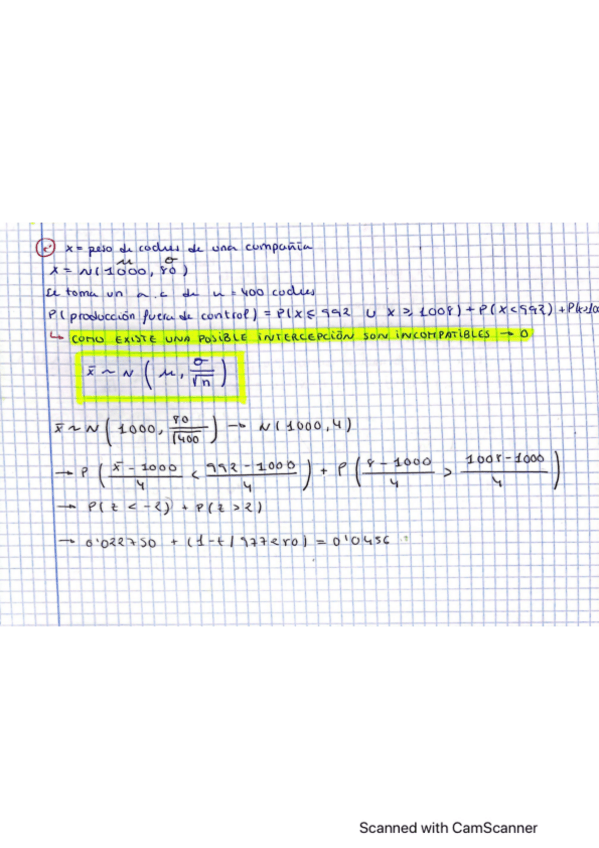 c) x = peso de coches de una compañía
μ σ
x = N(1000, 80)
Se toma un a.c de n = 400 coches
P(producción fuera de control) = P(x ≤ 992 ∪ x ≥ 1008) + P(x < 992) + P(x>100
↳ COMO EXISTE UNA POSIBLE INTERCEPCIÓN SON INCOMPATIBLES → 0
x̄ ~ N (μ, σ/√n)
x̄ ~ N (1000, 80/√400) → N(1000, 4)
→ P((x̄ - 1000)/4 < (992 - 1000)/4) + P((x̄ - 1000)/4 > (1008 - 1000)/4)
→ P(z < -2) + P(z > 2)
→ 0'022750 + (1- 977250) = 0'0456
Scanned with CamScanner